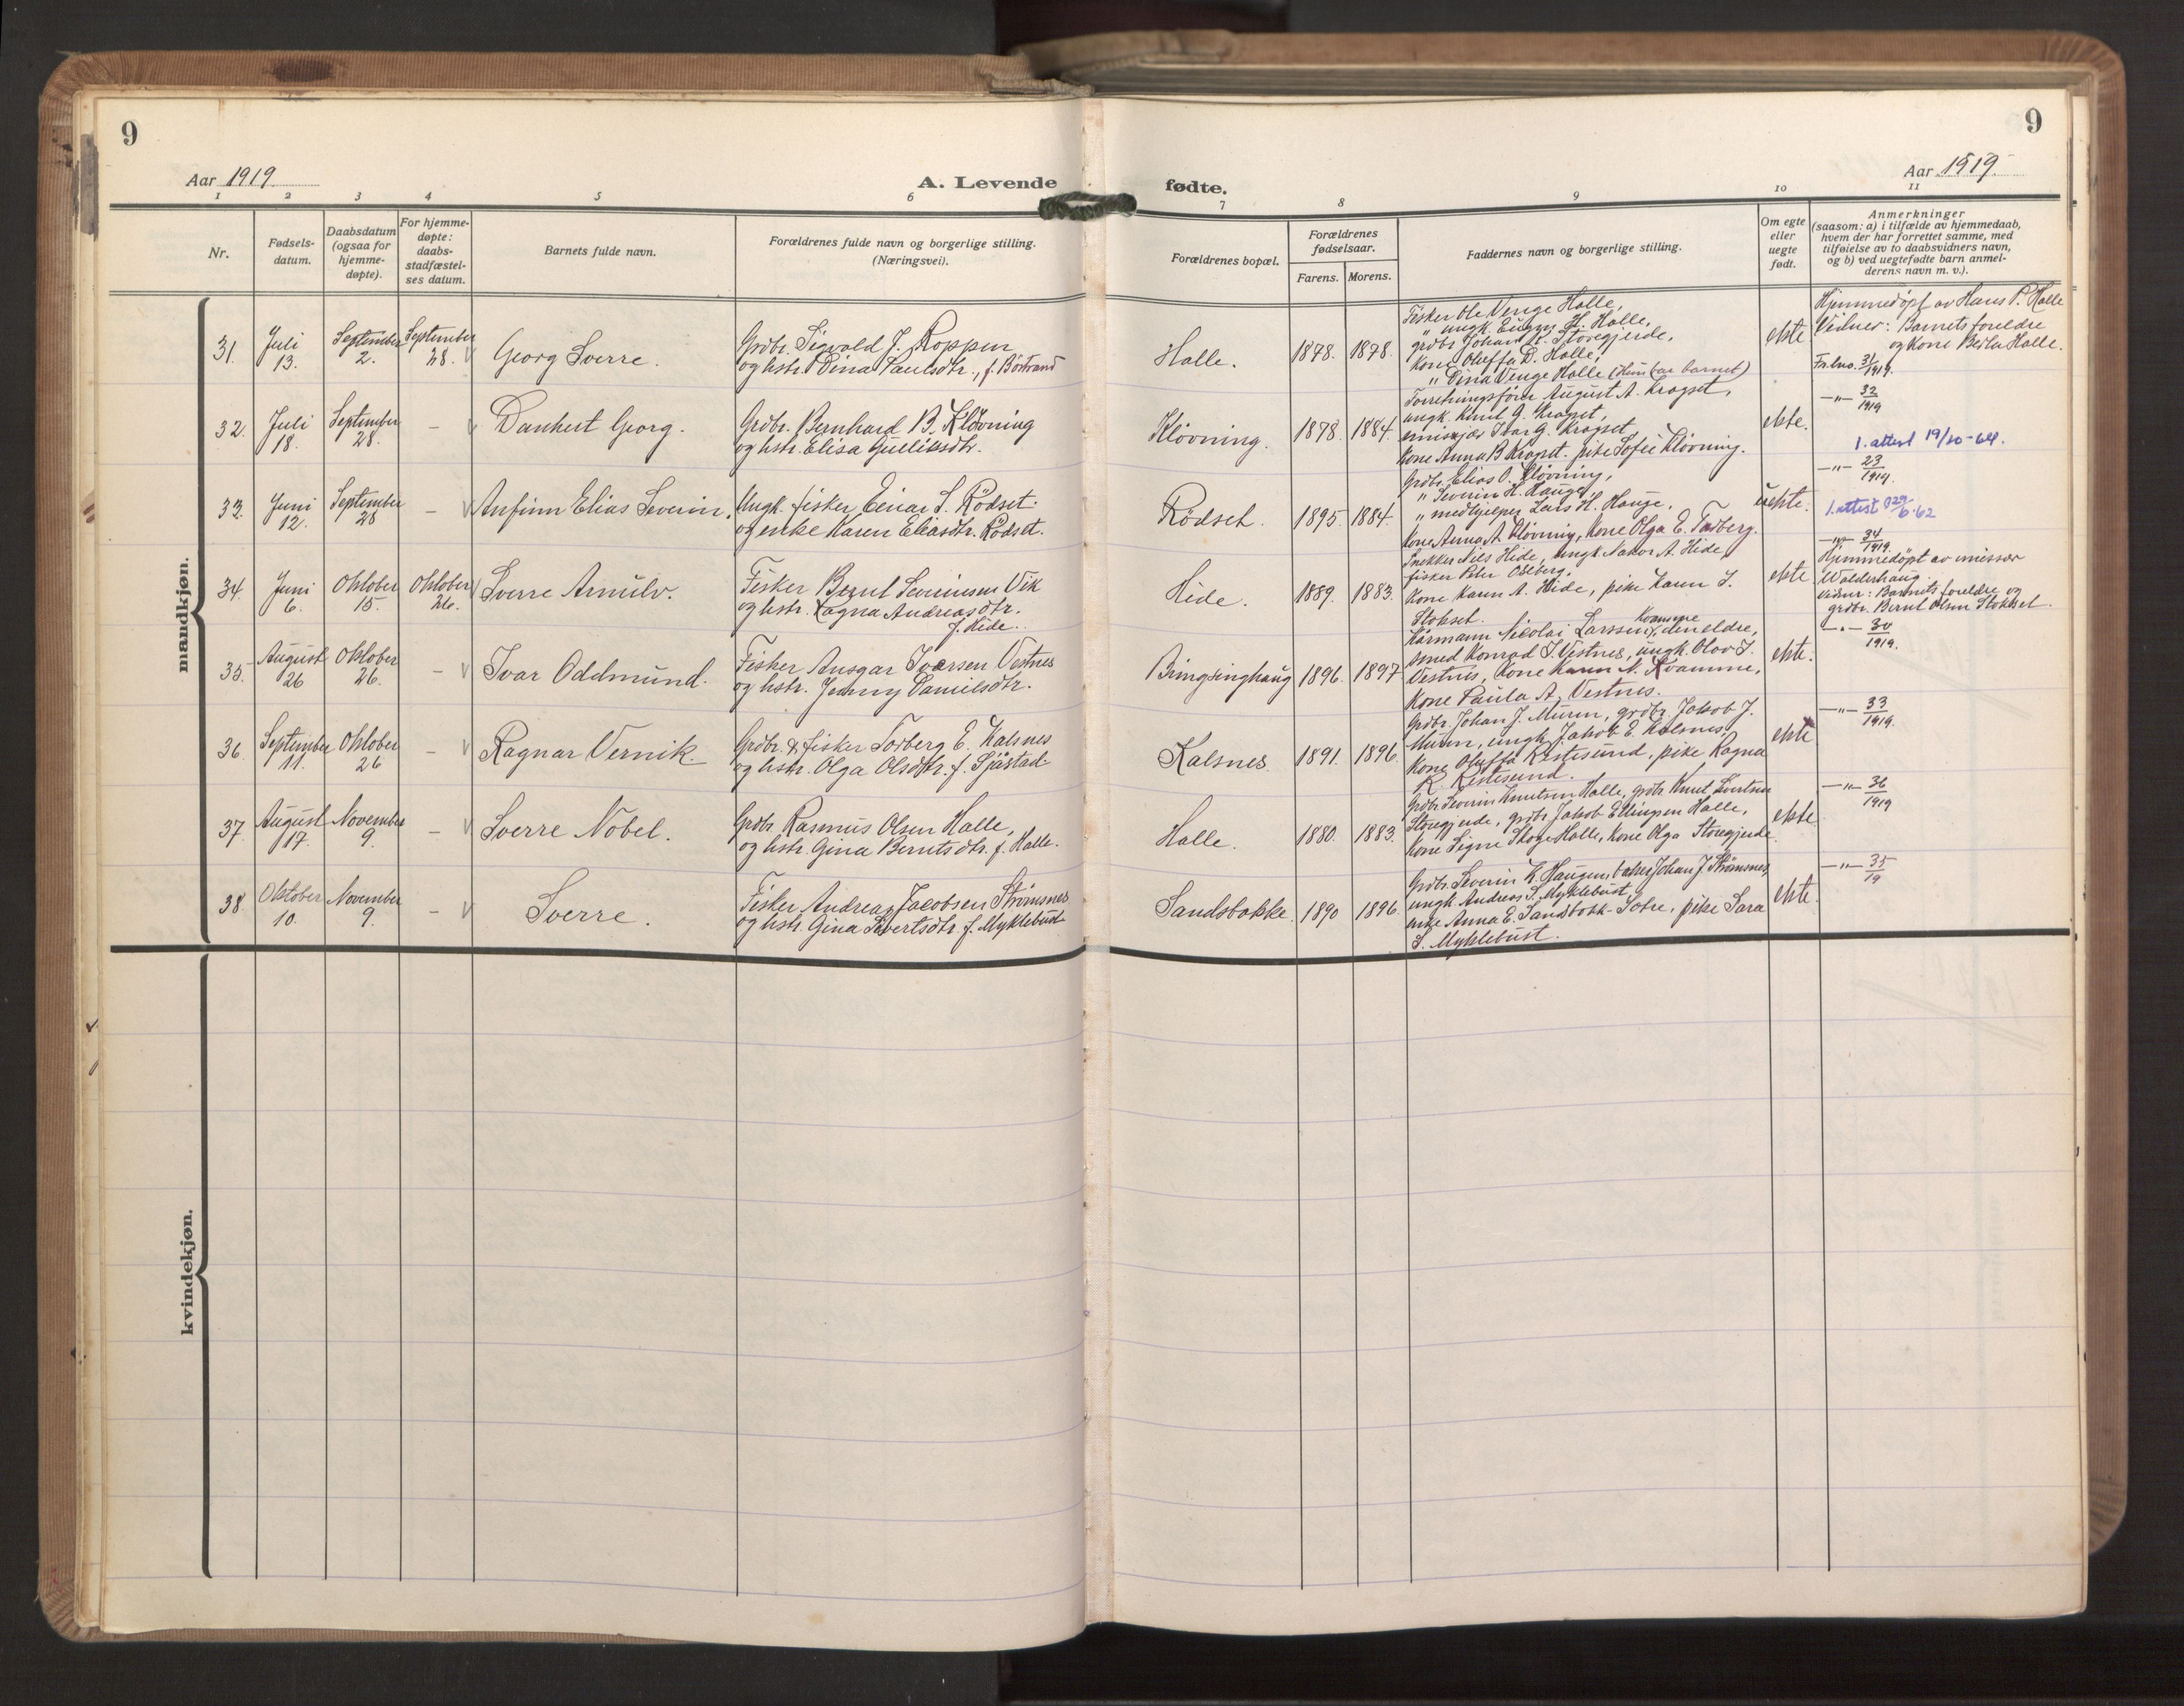 9
9
Aar 1919.
A. Levende fødte.
Aar 1919.
1 2 3 4 5 6 7 8 9 10 11
Nr.
Fødsels-
datum.
Daabsdatum
(ogsaa for
hjemme-
døpte).
For hjemme-
døpte:
daabs-
stadfæstel-
ses datum.
Barnets fulde navn.
Forældrenes fulde navn og borgerlige stilling.
(Næringsvei).
Forældrenes bopæl.
Forældrenes
fødselsaar.
Farens. Morens.
Faddernes navn og borgerlige stilling.
Om egte
eller
uegte
født.
Anmerkninger
(saasom: a) i tilfælde av hjemmedaab,
hvem der har forrettet samme, med
tilføielse av to daabsvidners navn,
og b) ved uegtefødte barn anmel-
derens navn m. v.).
mandkjøn.
31.
Juli
13.
September
2.
September
28.
Georg Sverre.
Grdbr. Sigvald J. Roppen
og hstr. Dina Paulsdtr., f. Börstrand
Halle.
1878. 1878.
Fisker Ole Venge Halle,
" ungk. Eugen H. Halle,
grdbr. Johan K. Storegjerde,
Kone Oluffa D. Halle,
" Dina Venge Halle (Hun bar barnet)
ekte
Hjemmedöpt av Hans P. Halle
Vidner: Barnets foreldre
og Kone Berta Halle.
Fr.lno. 31/1919.
32.
Juli
18.
September
28.
–
Dankert Georg.
Grdbr. Bernhard B. Klövning
og hstr. Elisa Gulliksdtr.
Klövning.
1878. 1884.
Forretningsförer August A. Kragset,
ungk. Knut G. Kragset,
emissær Ivar G. Kragset
Kone Anna B Kragset. pike Sofie Klövning.
ekte.
–"– 32/1919
1. attest 19/10-64.
33.
Juni
12.
September
28
–
Anfinn Elias Severin.
Ungk. fisker Einar S. Rödset
og enke Karen Eliasdtr. Rödset.
Rödset.
1895. 1884.
Grdbr. Elias O. Klövning,
" Severin H. Hauge,
" medhjelper Lars H. Hauge,
Kone Anna A. Klövning, Kone Olga E. Tarberg.
uekte.
–"– 23/1919.
1. attest 29/6-62
34.
Juni
6.
Oktober
15.
Oktober
26.
Sverre Arnulv.
Fisker Bernt Severinsen Vik
og hstr. Ragna Andreasdtr.
f. Hide.
Hide.
1889. 1883.
Snekker Nils Hide, ungk Nakor A. Hide,
fisker Peter Osberg.
Kone Karen A. Hide, pike Karen S.
Stokset.
ekte
–"– 34/1919.
Hjemmedöpt av emissær
Walderhaug.
Vidner: Barnets foreldre og
grdbr. Bernt Olsen Stokset.
35.
August
26
Oktober
26.
–
Ivar Oddmund.
Fisker Ansgar Iversen Vestnes
og hstr. Jenny Danielsdtr.
Bringsinghaug
1896. 1897
Kårmann Nicolai Larssen Kvamme, den eldre,
smed Konrad I. Vestnes, ungk. Olav I.
Vestnes, Kone Karen N. Kvamme,
Kone Paula A. Vestnes.
ekte.
–"– 30/1919.
36.
September
11.
Oktober
26
–
Ragnar Vernik.
Grdbr. & fisker Torberg E. Kalsnes
og hstr. Olga Olsdtr. f. Sjåstad.
Kalsnes.
1891. 1896.
Grdbr. Johan J. Muren, grdbr. Jakob J.
Muren, ungk. Jakob E. Kalsnes,
Kone Oluffa Ristesund, pike Ragna
R. Ristesund.
ekte
–"– 33/1919.
37.
August
17.
November
9.
–
Sverre Nobel.
Grdbr. Rasmus Olsen Halle,
og hstr. Gina Berntsdtr. f. Halle.
Halle.
1880. 1883.
Grdbr. Severin Knutsen Halle, grdbr Knut Sivertsen
Storegjerde, grdbr Jakob Ellingsen Halle,
Kone Signe Skoge Halle, Kone Olga Storegjerde
ekte
–"– 36/1919
38
Oktober
10.
November
9.
–
Sverre.
Fisker Andreas Jacobsen Strömsnes
og hstr. Gina Sivertsdtr. f. Myklebust
Sandsbakke.
1890 1896.
Grdbr. Severin K. Haugen, baker Johan J. Strömsnes,
ungk Andreas S. Myklebust,
enke Anna E. Sandsbakk-Sotre, pike Sara
S. Myklebust.
ekte.
–"– 35/19
kvindekjøn.